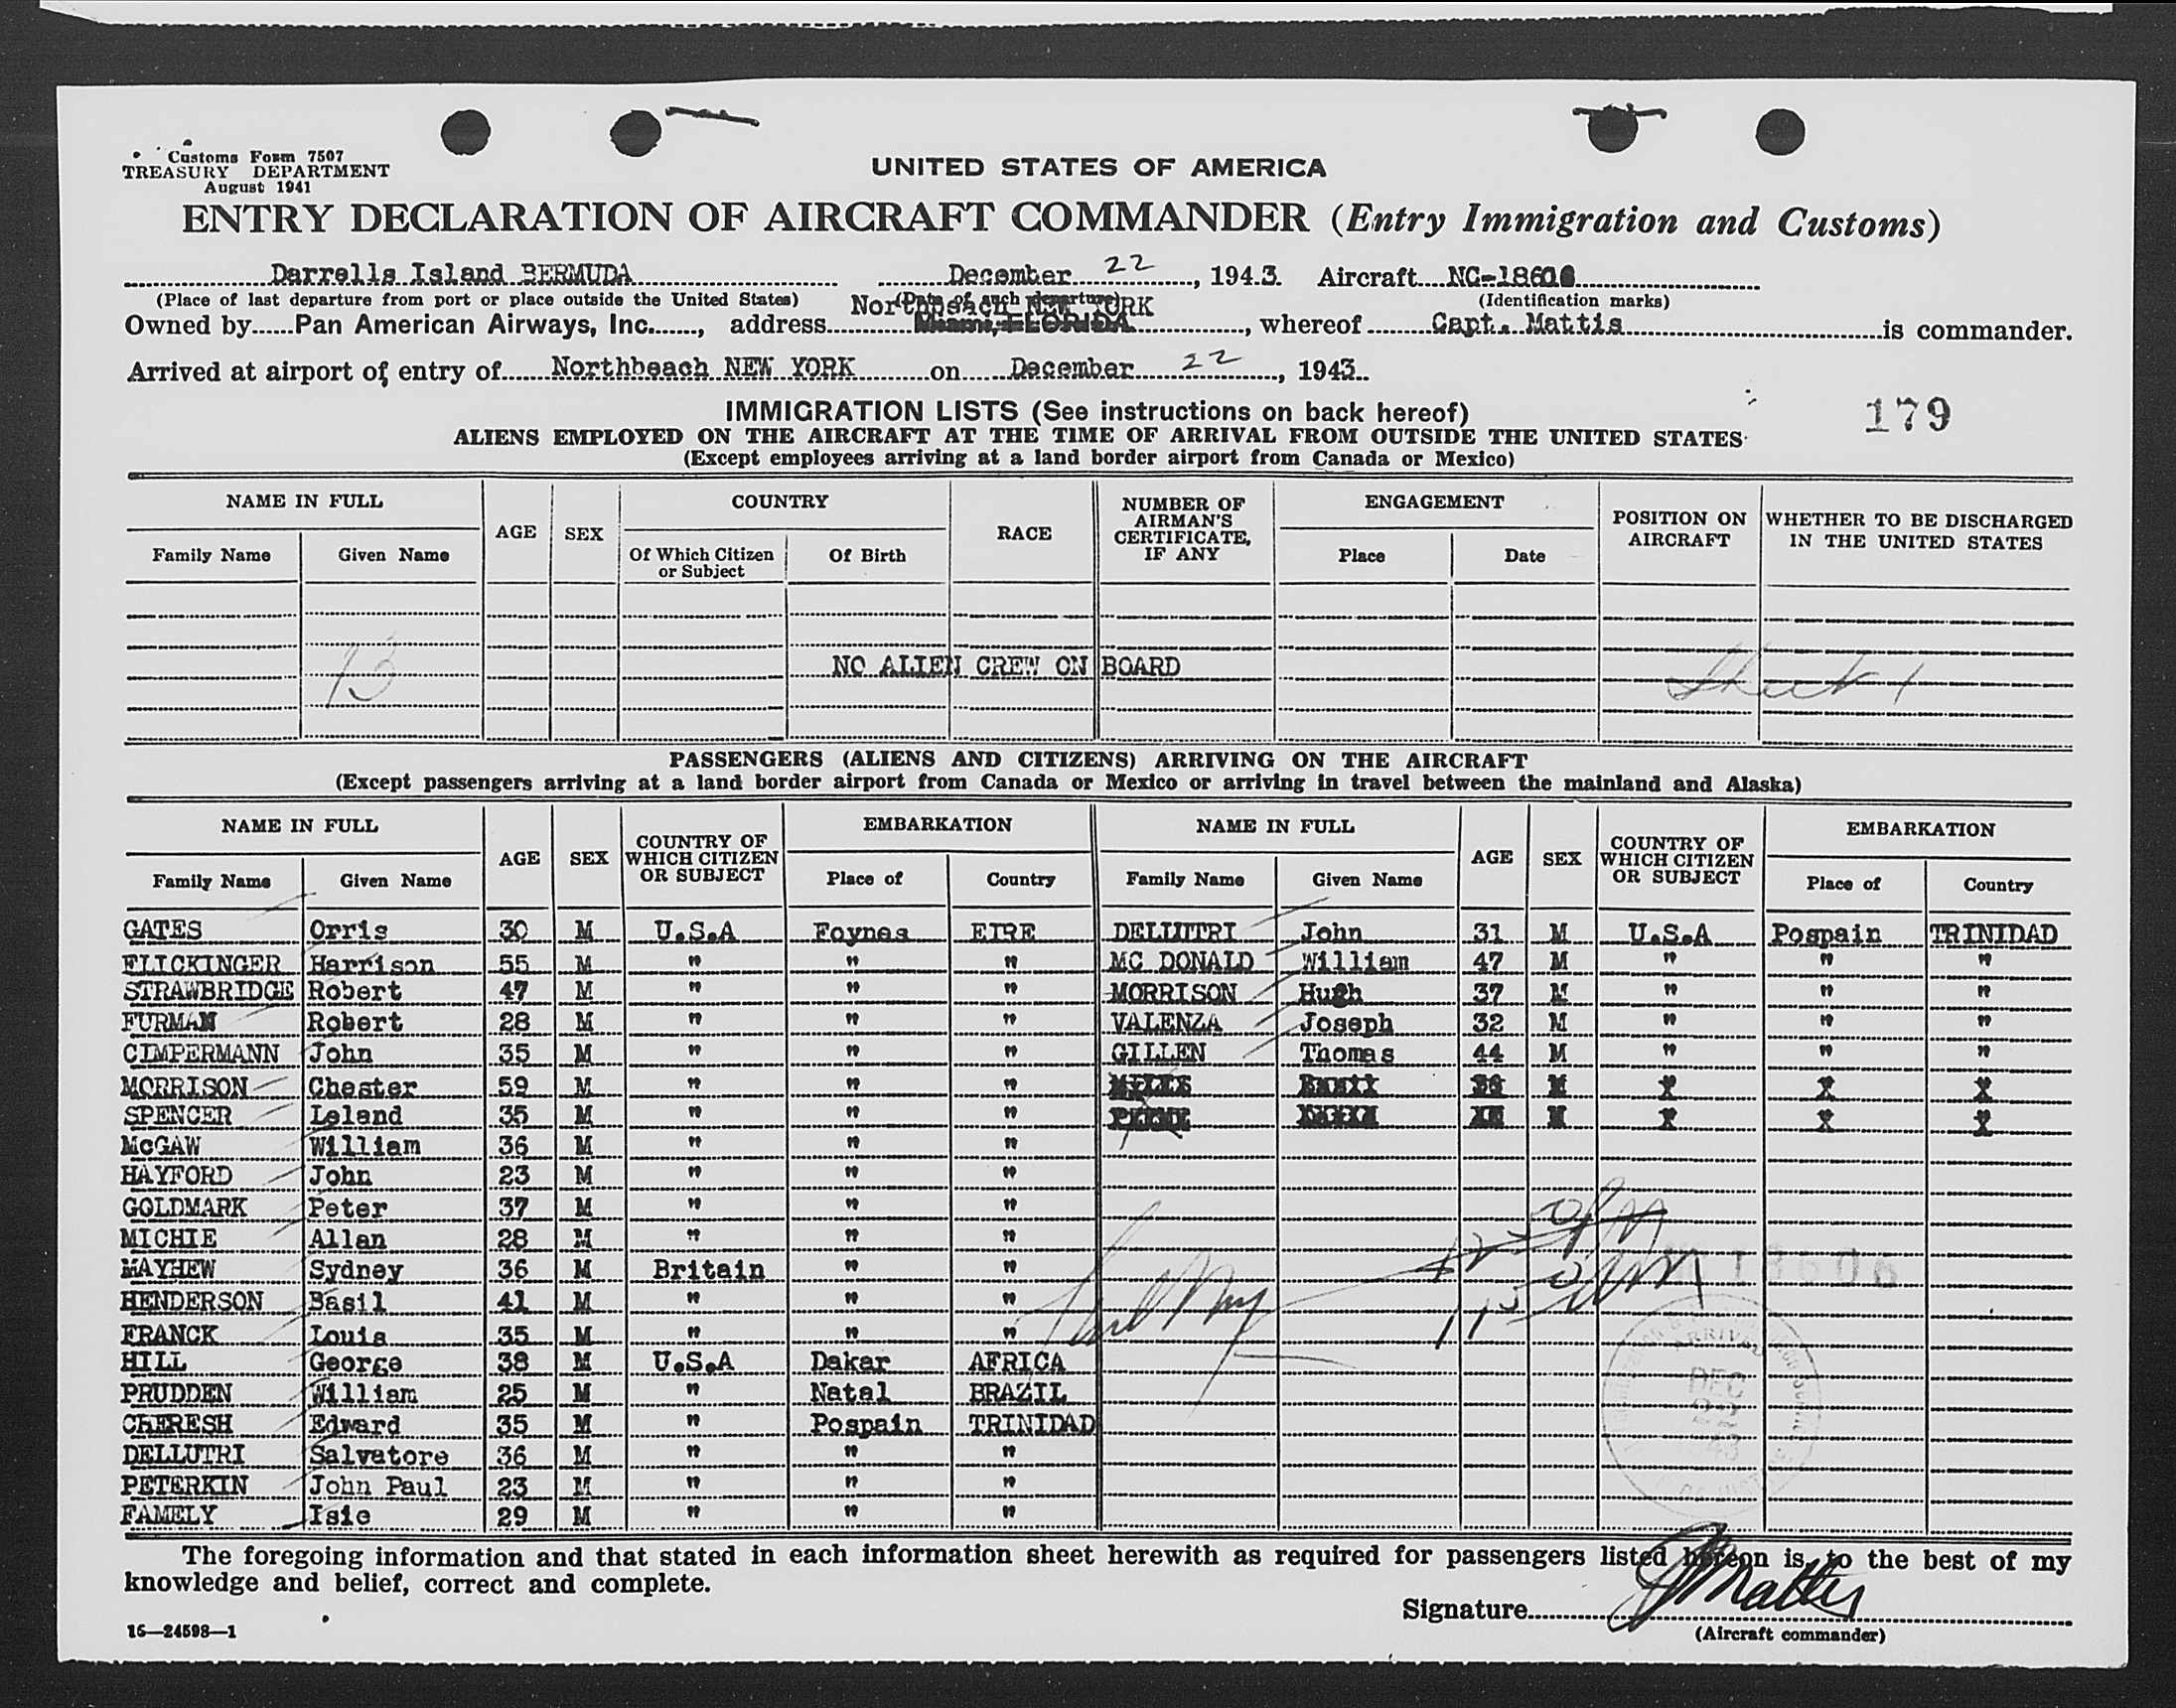 Customs Form 7507
TREASURY DEPARTMENT
August 1941
UNITED STATES OF AMERICA
ENTRY DECLARATION OF AIRCRAFT COMMANDER (Entry Immigration and Customs)
Darrells Island BERMUDA December 22, 1943. Aircraft NC-18606
(Place of last departure from port or place outside the United States) (Date of such departure) (Identification marks)
Northbeach NEW YORK
Owned by Pan American Airways, Inc., address Miami, FLORIDA, whereof Capt. Mattis is commander.
Arrived at airport of entry of Northbeach NEW YORK on December 22, 1943.
IMMIGRATION LISTS (See instructions on back hereof)
179
ALIENS EMPLOYED ON THE AIRCRAFT AT THE TIME OF ARRIVAL FROM OUTSIDE THE UNITED STATES
(Except employees arriving at a land border airport from Canada or Mexico)
NAME IN FULL AGE SEX COUNTRY RACE NUMBER OF AIRMAN'S CERTIFICATE, IF ANY ENGAGEMENT POSITION ON AIRCRAFT WHETHER TO BE DISCHARGED IN THE UNITED STATES
Family Name Given Name Of Which Citizen or Subject Of Birth Place Date
NO ALIEN CREW ON BOARD
13 Sheet 1
PASSENGERS (ALIENS AND CITIZENS) ARRIVING ON THE AIRCRAFT
(Except passengers arriving at a land border airport from Canada or Mexico or arriving in travel between the mainland and Alaska)
NAME IN FULL AGE SEX COUNTRY OF WHICH CITIZEN OR SUBJECT EMBARKATION NAME IN FULL AGE SEX COUNTRY OF WHICH CITIZEN OR SUBJECT EMBARKATION
Family Name Given Name Place of Country Family Name Given Name Place of Country
GATES Orris 30 M U.S.A Foynes EIRE DELLUTRI John 31 M U.S.A Pospain TRINIDAD
FLICKINGER Harrison 55 M " " " MC DONALD William 47 M " " "
STRAWBRIDGE Robert 47 M " " " MORRISON Hugh 37 M " " "
FURMAN Robert 28 M " " " VALENZA Joseph 32 M " " "
CIMPERMANN John 35 M " " " GILLEN Thomas 44 M " " "
MORRISON Chester 59 M " " "
SPENCER Leland 35 M " " "
McGAW William 36 M " " "
HAYFORD John 23 M " " "
GOLDMARK Peter 37 M " " "
MICHIE Allan 28 M " " "
MAYHEW Sydney 36 M Britain " "
HENDERSON Basil 41 M " " "
FRANCK Louis 35 M " " "
HILL George 38 M U.S.A Dakar AFRICA
PRUDDEN William 25 M " Natal BRAZIL
CHERESH Edward 35 M " Pospain TRINIDAD
DELLUTRI Salvatore 36 M " " "
PETERKIN John Paul 23 M " " "
FAMELY Isie 29 M " " "
ARRIVED
DEC
22
43
The foregoing information and that stated in each information sheet herewith as required for passengers listed hereon is, to the best of my
knowledge and belief, correct and complete.
Signature Mattis
(Aircraft commander)
16—24598—1